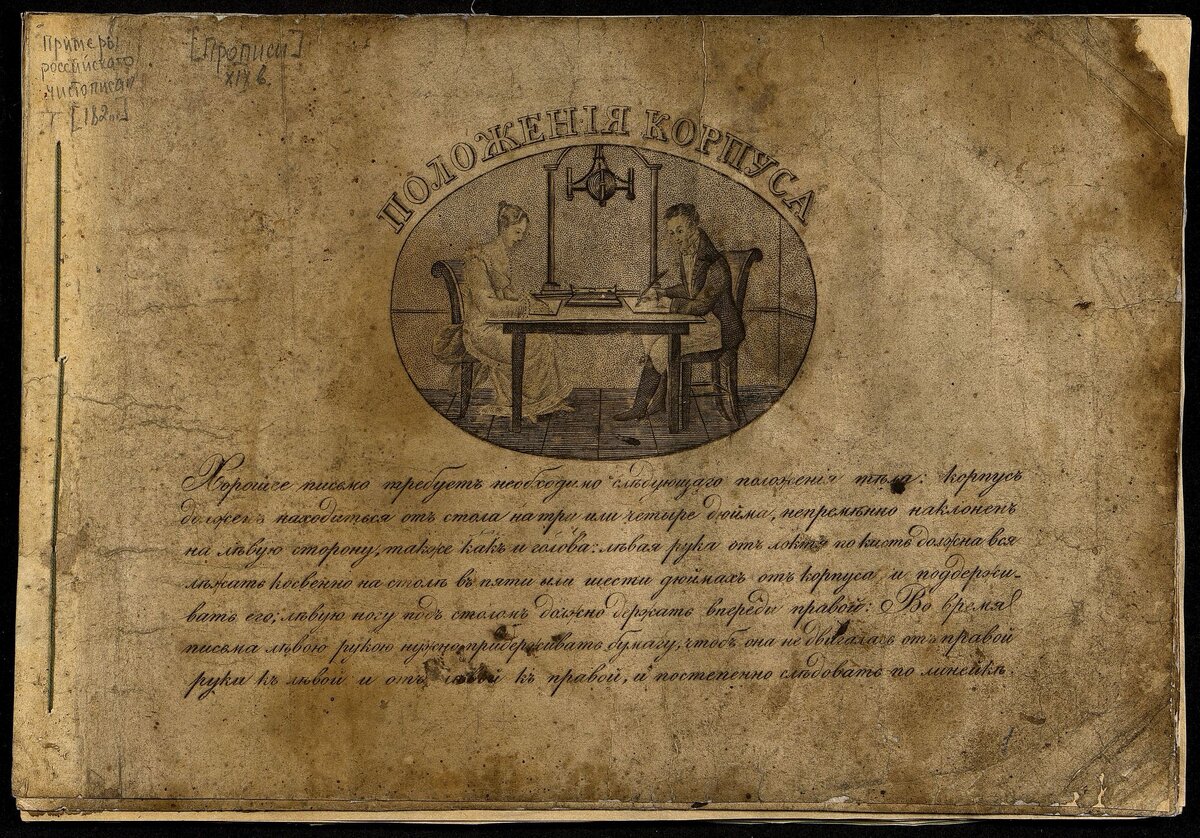 Примеры
россiйскаго
чистописан
[182..]
[Прописи]
XIX в.
ПОЛОЖЕНІЯ КОРПУСА
Хорошее письмо требуетъ необходимо слѣдующаго положенія тѣла: корпусъ
долженъ находиться отъ стола на три или четыре дюйма, непремѣнно наклоненъ
на лѣвую сторону, также какъ и голова: лѣвая рука отъ локтя по кисть должна вся
лѣжать косвенно на столѣ въ пяти или шести дюймахъ отъ корпуса и поддержи-
вать его; лѣвую ногу подъ столомъ должно держать впереди правой: Во время
письма лѣвою рукою нужно придерживать бумагу, чтобъ она не двигалась отъ правой
руки къ лѣвой и отъ лѣвой къ правой, и постепенно слѣдовать по линейкѣ.